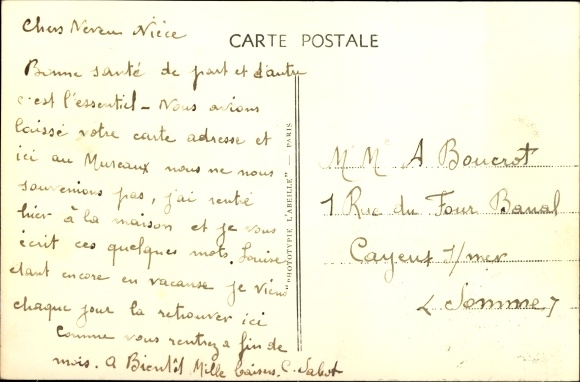 Chers Neveu Nièce
CARTE POSTALE
Bonne santé de part et d'autre
c'est l'essentiel – Nous avions
laissé votre carte adresse et
ici au Mureaux nous ne nous
souvenions pas, j'ai rentré
hier à la maison et je vous
écrit ces quelques mots. Louise
étant encore en vacanse je viens
chaque jour la retrouver ici
comme vous rentrez a fin de
mois. A Bientôt Mille baisers. C. Sabot
"PHOTOTYPIE L'ABEILLE" — PARIS
M M A Boucrot
1 Rue du Four Banal
Cayeux s/mer
(Somme)